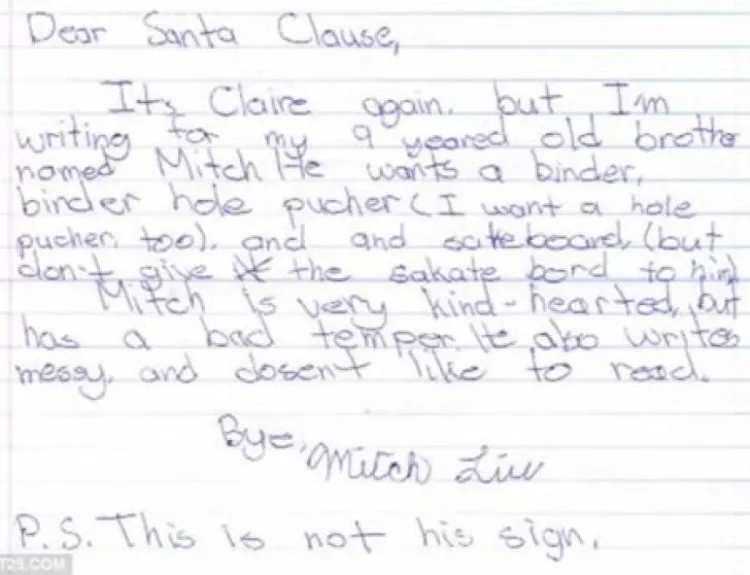 Dear Santa Clause,
Its Claire again. but I'm
writing for my 9 yeared old brothe
named Mitch He wants a binder,
binder hole pucher (I want a hole
pucher, too). and and sakeboard, (but
don't give the sakate bord to him)
Mitch is very kind-hearted, but
has a bad temper. He also writes
messy. and dosen't like to read.
Bye,
Mitch Liu
P.S. This is not his sign.